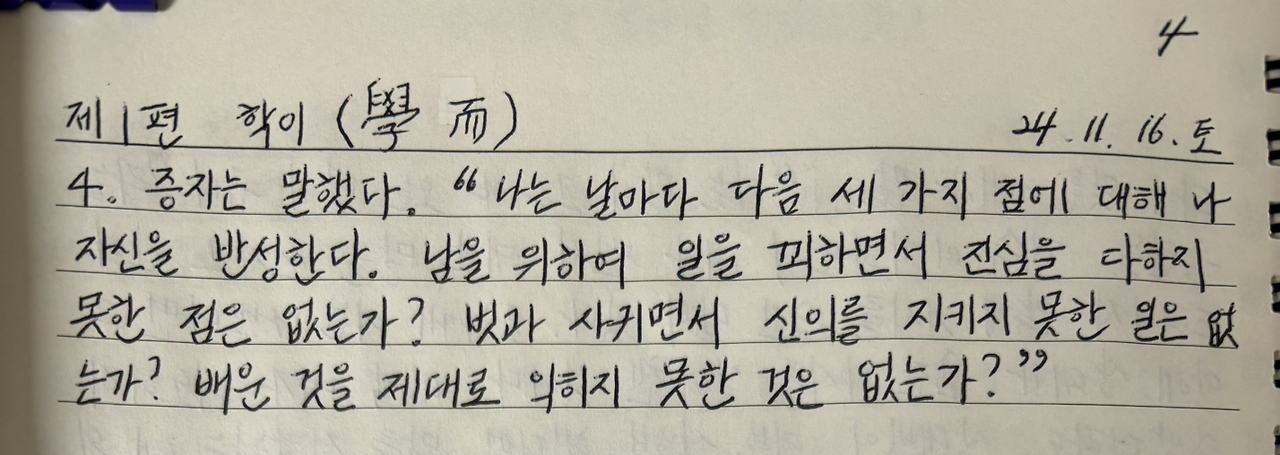 4
제1편 학이 (學而) 24.11.16.토
4. 증자는 말했다. “나는 날마다 다음 세 가지 점에 대해 나
자신을 반성한다. 남을 위하여 일을 꾀하면서 진심을 다하지
못한 점은 없는가? 벗과 사귀면서 신의를 지키지 못한 일은 없
는가? 배운 것을 제대로 익히지 못한 것은 없는가?”